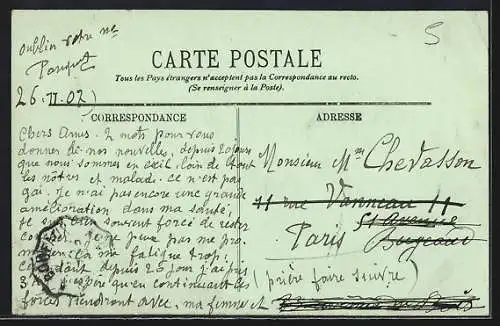 oublier votre nº
CARTE POSTALE
Tous les Pays étrangers n'acceptent pas la Correspondance au recto.
(Se renseigner à la Poste).
26.II.07
CORRESPONDANCE
Chers Amis. 2 mots pour vous
donner de nos nouvelles, depuis 20 jours
que nous sommes en exil, loin de tout
les nôtres et malade. ce n'est pas
gai. Je n'ai pas encore une grande
amélioration dans ma santé,
je suis bien souvent forcé de rester
coucher. je ne peux pas me pro
mener, ça me fatigue trop,
cependant depuis 25 jours j'ai pas
3 J'espère qu'en continuant les
forces viendront avec, ma femme et
ADRESSE
Monsieur Mme Chevasson
11 rue Vanneau 11
Paris
(prière faire suivre)
5